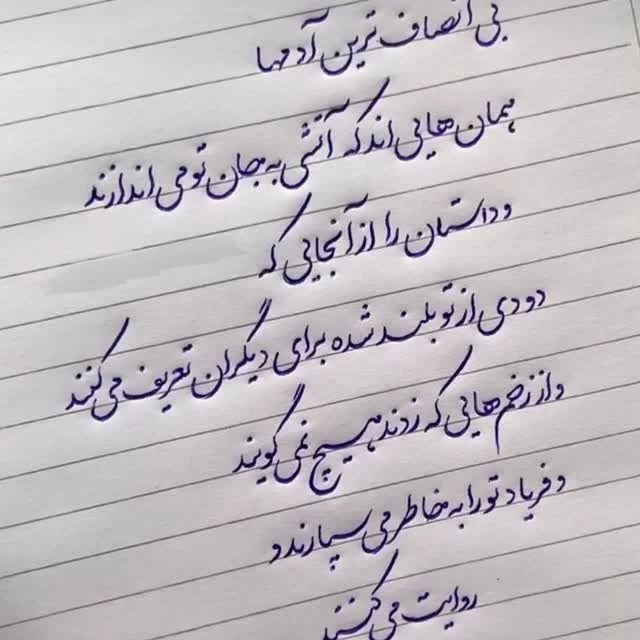 بی انصاف ترین آدمها
همان هایی اند که آتش به جان تو می اندازند
و داستان را از آنجایی که
دودی از تو بلند شده برای دیگران تعریف می کنند
و از زخم هایی که زدند هیچ نمی گویند
و فریاد تو را به خاطر می سپارند و
روایت می کنند